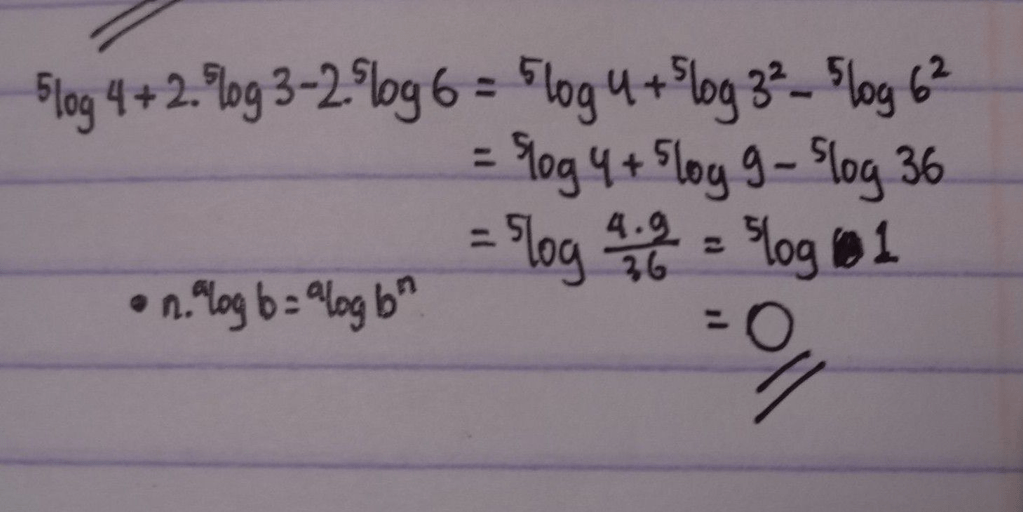 ⁵log 4 + 2. ⁵log 3 - 2. ⁵log 6 = ⁵log 4 + ⁵log 3² - ⁵log 6²
= ⁵log 4 + ⁵log 9 - ⁵log 36
= ⁵log 4.9/36 = ⁵log 1
• n. ᵃlog b = ᵃlog bⁿ
= 0